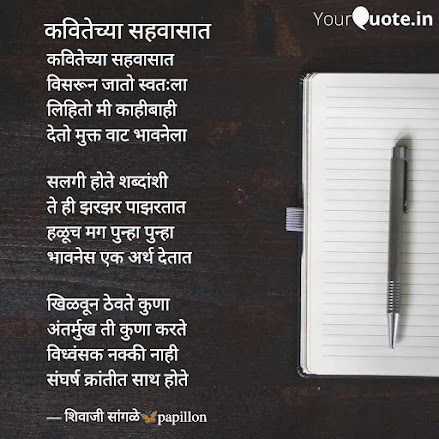 YourQuote.in
कवितेच्या सहवासात
कवितेच्या सहवासात
विसरून जातो स्वतःला
लिहितो मी काहीबाही
देतो मुक्त वाट भावनेला
सलगी होते शब्दांशी
ते ही झरझर पाझरतात
हळूच मग पुन्हा पुन्हा
भावनेस एक अर्थ देतात
खिळवून ठेवते कुणा
अंतर्मुख ती कुणा करते
विध्वंसक नक्की नाही
संघर्ष क्रांतीत साथ होते
— शिवाजी सांगळे🦋papillon